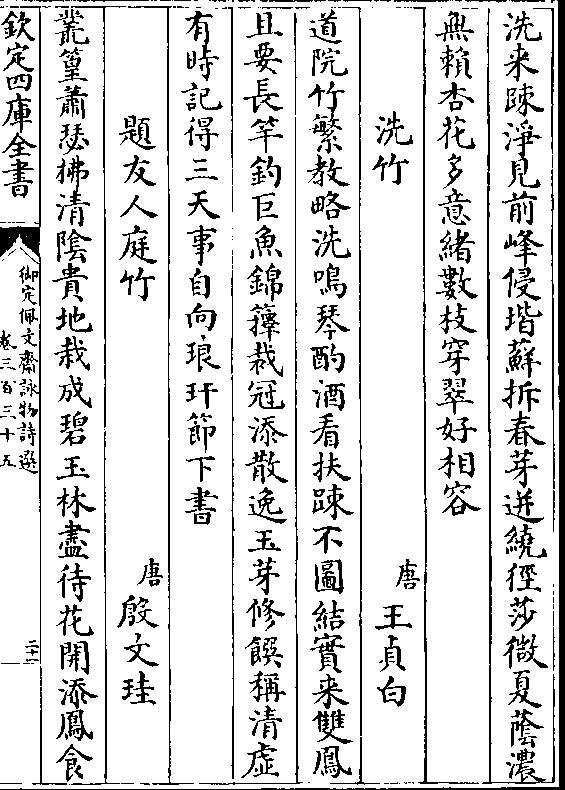 洗来踈淨見前峰侵堦蘇拆春芽迸繞徑莎微夏蔭濃
無賴杏花多意緒數枝穿翠好相容
洗竹
唐
王貞白
道院竹繁教略洗鳴琴酌酒看扶踈不圖結實来雙鳳
且要長竿釣巨魚錦籜裁冠添散逸玉芽修饌稱清虛
有時記得三天事自向琅玕節下書
題友人庭竹
唐
殷文珪
叢篁蕭瑟拂清陰貴地栽成碧玉林盡待花開添鳳食
欽定四庫全書
御定佩文齋詠物詩選
卷三百三十五
二十一